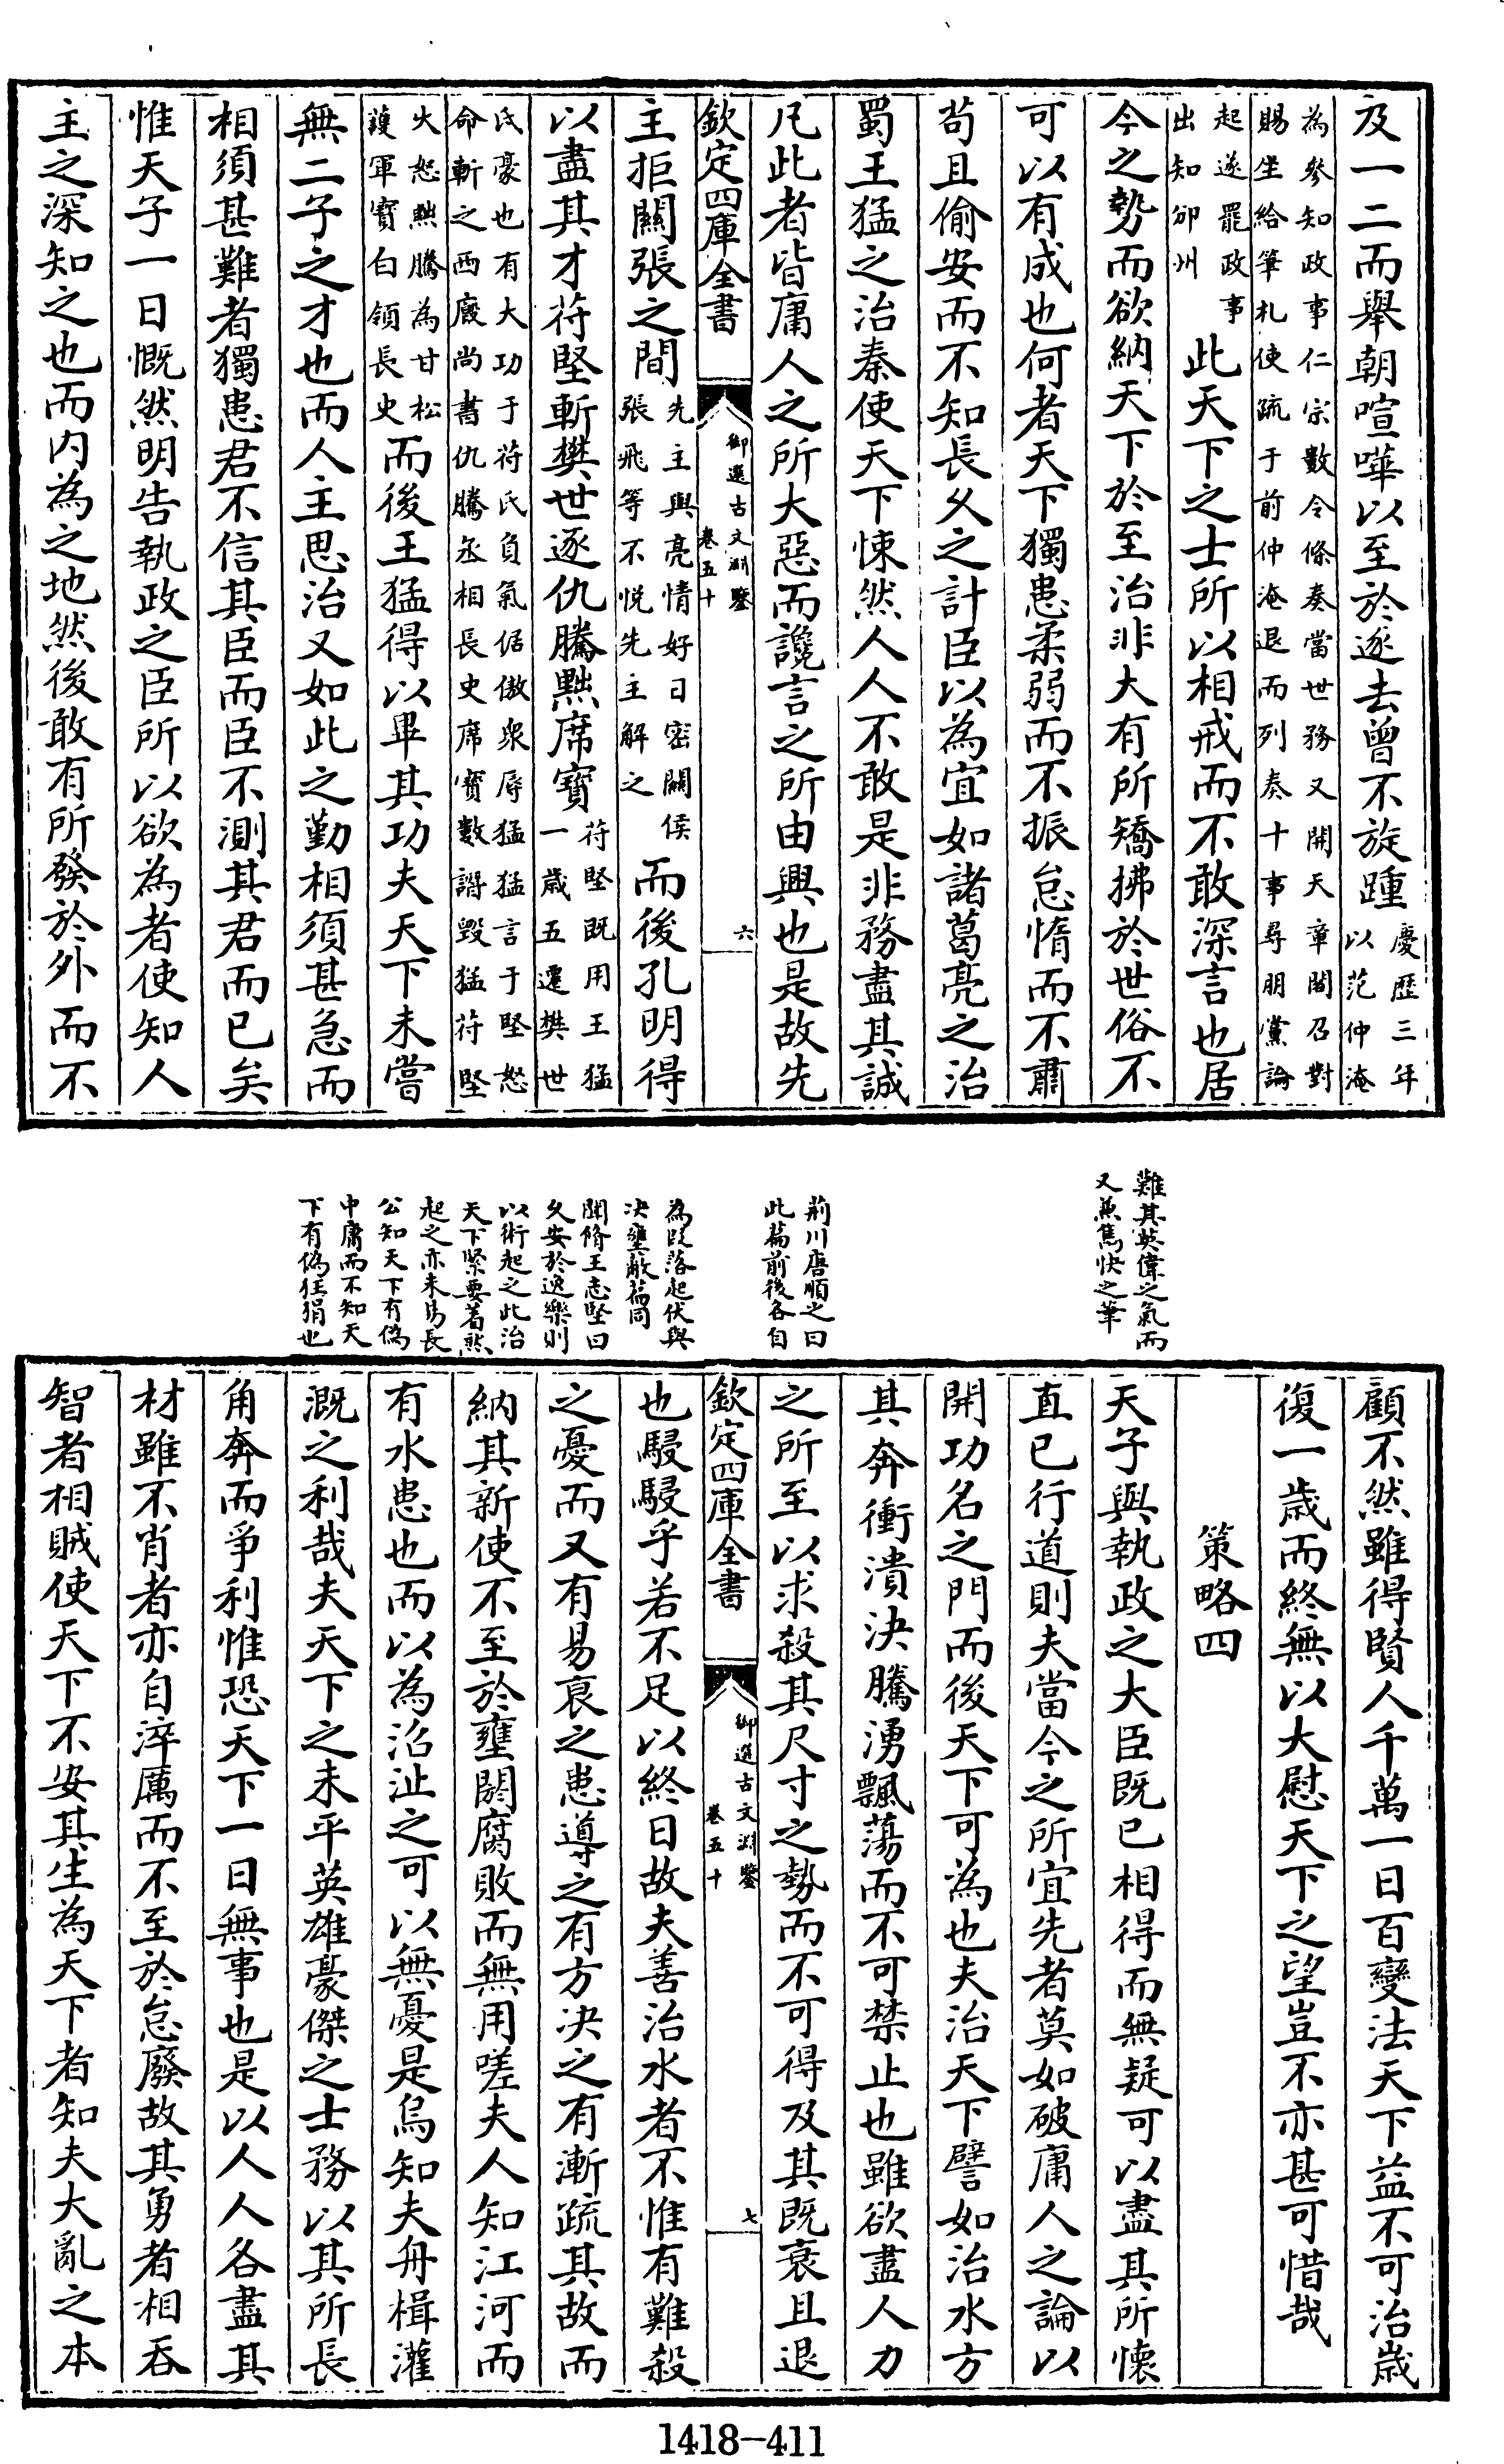 及一二而舉朝喧嘩以至於逐去曾不旋踵慶歴三年以范仲淹
為參知政事仁宗數令條奏當世務又開天章閣召對賜坐給筆札使疏于前仲淹退而列奏十事尋朋黨論
起遂罷政事出知邠州此天下之士所以相戒而不敢深言也居
今之勢而欲納天下於至治非大有所矯拂於世俗不
可以有成也何者天下獨患柔弱而不振怠惰而不肅
苟且偷安而不知長久之計臣以為宜如諸葛亮之治
蜀王猛之治秦使天下悚然人人不敢是非務盡其誠
凡此者皆庸人之所大惡而讒言之所由興也是故先
欽定四庫全書
御選古文淵鑒
卷五十
六
主拒關張之間先主與亮情好日密關侯張飛等不悅先主解之而後孔明得
以盡其才苻堅斬樊世逐仇騰黜席寶苻堅既用王猛一歲五遷樊世
氐豪也有大功于苻氏負氣倨傲衆辱猛猛言于堅怒命斬之西廐尚書仇騰丞相長史席寶數譖毀猛苻堅
大怒黜騰為甘松護軍寶白領長史而後王猛得以畢其功夫天下未嘗
無二子之才也而人主思治又如此之勤相須甚急而
相須甚難者獨患君不信其臣而臣不測其君而已矣
惟天子一日慨然明告執政之臣所以欲為者使知人
主之深知之也而内為之地然後敢有所發於外而不
難其英偉之氣而
又兼雋快之筆
荊川唐順之曰
此篇前後各自
為段落起伏與
決壅蔽篇同
閑脩王志堅曰
久安於逸樂則
以術起之此治
天下緊要着然
起之亦未易長
公知天下有偽
中庸而不知天
下有偽狂狷也
顧不然雖得賢人千萬一日百變法天下益不可治歲
復一歲而終無以大慰天下之望豈不亦甚可惜哉
策略四
天子與執政之大臣既已相得而無疑可以盡其所懷
直已行道則夫當今之所宜先者莫如破庸人之論以
開功名之門而後天下可為也夫治天下譬如治水方
其奔衝潰決騰湧飄蕩而不可禁止也雖欲盡人力
之所至以求殺其尺寸之勢而不可得及其既衰且退
欽定四庫全書
御選古文淵鑒
卷五十
七
也駸駸乎若不足以終日故夫善治水者不惟有難殺
之憂而又有易衰之患導之有方決之有漸疏其故而
納其新使不至於壅閼腐敗而無用嗟夫人知江河而
有水患也而以為沼沚之可以無憂是烏知夫舟楫灌
溉之利哉夫天下之未平英雄豪傑之士務以其所長
角奔而爭利惟恐天下一日無事也是以人人各盡其
材雖不肖者亦自淬厲而不至於怠廢故其勇者相吞
智者相賊使天下不安其生為天下者知夫大亂之本
1418-411